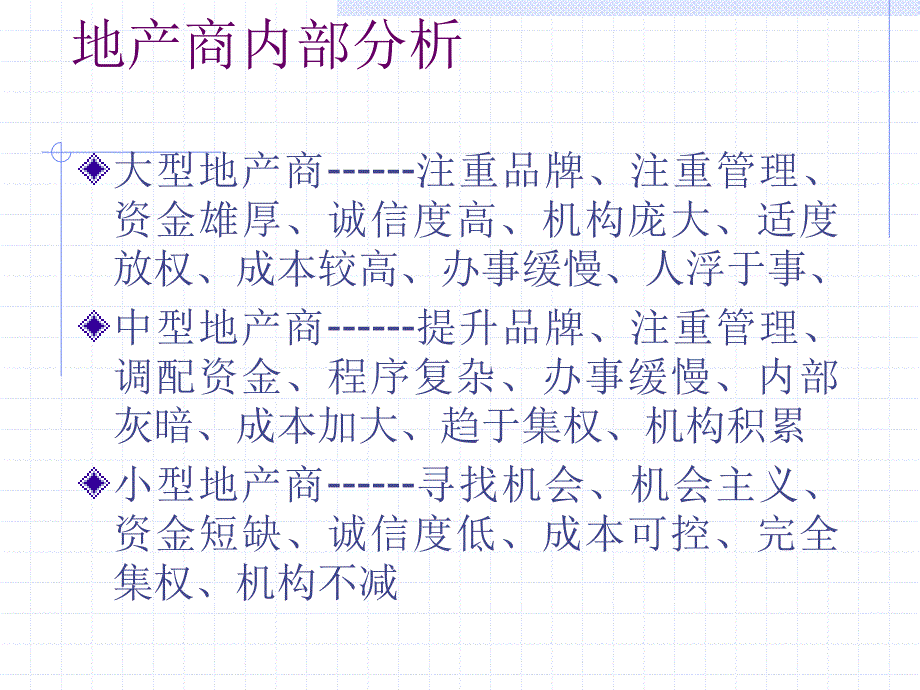 地产商内部分析
大型地产商------注重品牌、注重管理、
资金雄厚、诚信度高、机构庞大、适度
放权、成本较高、办事缓慢、人浮于事、
中型地产商------提升品牌、注重管理、
调配资金、程序复杂、办事缓慢、内部
灰暗、成本加大、趋于集权、机构积累
小型地产商------寻找机会、机会主义、
资金短缺、诚信度低、成本可控、完全
集权、机构不减